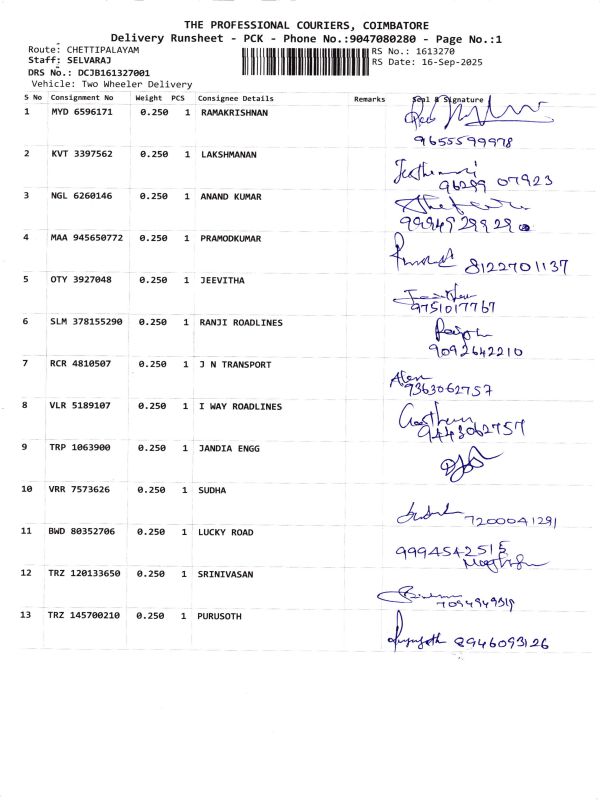 THE PROFESSIONAL COURIERS, COIMBATORE
Delivery Runsheet - PCK - Phone No.:9047080280 - Page No.:1
Route: CHETTIPALAYAM RS No.: 1613270
Staff: SELVARAJ RS Date: 16-Sep-2025
DRS No.: DCJB161327001
Vehicle: Two Wheeler Delivery
S No Consignment No Weight PCS Consignee Details Remarks Seal & Signature
1 MYD 6596171 0.250 1 RAMAKRISHNAN
9655599978
2 KVT 3397562 0.250 1 LAKSHMANAN
96299 07923
3 NGL 6260146 0.250 1 ANAND KUMAR
9994929920
4 MAA 945650772 0.250 1 PRAMODKUMAR
8122701137
5 OTY 3927048 0.250 1 JEEVITHA
9751017767
6 SLM 378155290 0.250 1 RANJI ROADLINES
9092642210
7 RCR 4810507 0.250 1 J N TRANSPORT
9363062757
8 VLR 5189107 0.250 1 I WAY ROADLINES
9443062757
9 TRP 1063900 0.250 1 JANDIA ENGG
10 VRR 7573626 0.250 1 SUDHA
7200041291
11 BWD 80352706 0.250 1 LUCKY ROAD
9994542515
12 TRZ 120133650 0.250 1 SRINIVASAN
13 TRZ 145700210 0.250 1 PURUSOTH
8946093126